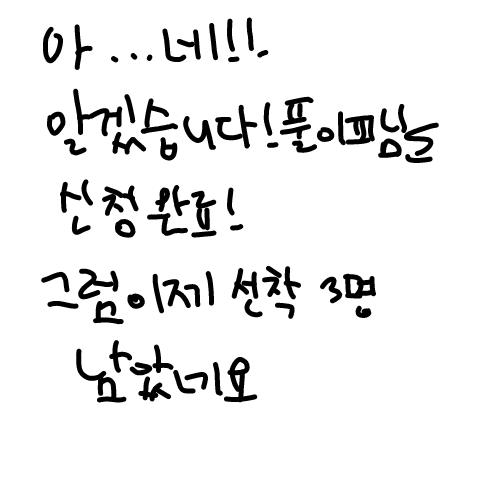 아...네!!
알겠습니다!풀이피님는
신청완료!
그럼이제 선착 3명
남았네요